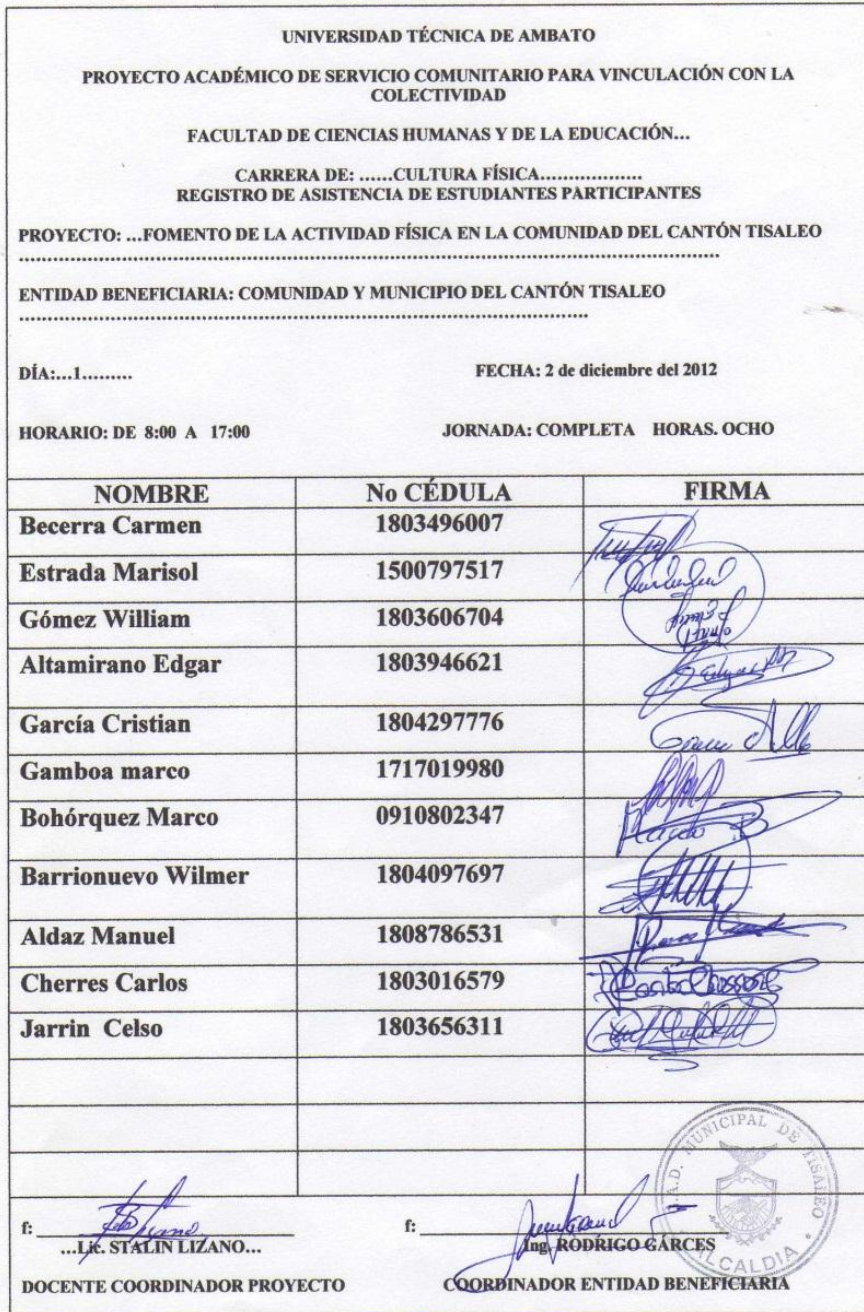 UNIVERSIDAD TÉCNICA DE AMBATO
PROYECTO ACADÉMICO DE SERVICIO COMUNITARIO PARA VINCULACIÓN CON LA
COLECTIVIDAD
FACULTAD DE CIENCIAS HUMANAS Y DE LA EDUCACIÓN...
CARRERA DE: ......CULTURA FÍSICA...................
REGISTRO DE ASISTENCIA DE ESTUDIANTES PARTICIPANTES
PROYECTO: ...FOMENTO DE LA ACTIVIDAD FÍSICA EN LA COMUNIDAD DEL CANTÓN TISALEO
ENTIDAD BENEFICIARIA: COMUNIDAD Y MUNICIPIO DEL CANTÓN TISALEO
DÍA:...1......... FECHA: 2 de diciembre del 2012
HORARIO: DE 8:00 A 17:00 JORNADA: COMPLETA HORAS. OCHO
NOMBRE No CÉDULA FIRMA
Becerra Carmen 1803496007
Estrada Marisol 1500797517
Gómez William 1803606704
Altamirano Edgar 1803946621
García Cristian 1804297776
Gamboa marco 1717019980
Bohórquez Marco 0910802347
Barrionuevo Wilmer 1804097697
Aldaz Manuel 1808786531
Cherres Carlos 1803016579
Jarrin Celso 1803656311
G.A.D. MUNICIPAL DE TISALEO
ALCALDIA
f: f:
...Lic. STALIN LIZANO... Ing. RODRIGO GARCES
DOCENTE COORDINADOR PROYECTO COORDINADOR ENTIDAD BENEFICIARIA